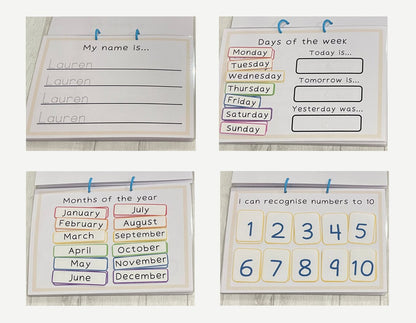 My name is...
Lauren
Lauren
Lauren
Lauren
Days of the week
Monday
Tuesday
Wednesday
Thursday
Friday
Saturday
Sunday
Today is...
Tomorrow is...
Yesterday was...
Months of the year
January
February
March
April
May
June
July
August
September
October
November
December
I can recognise numbers to 10
1 2 3 4 5
6 7 8 9 10